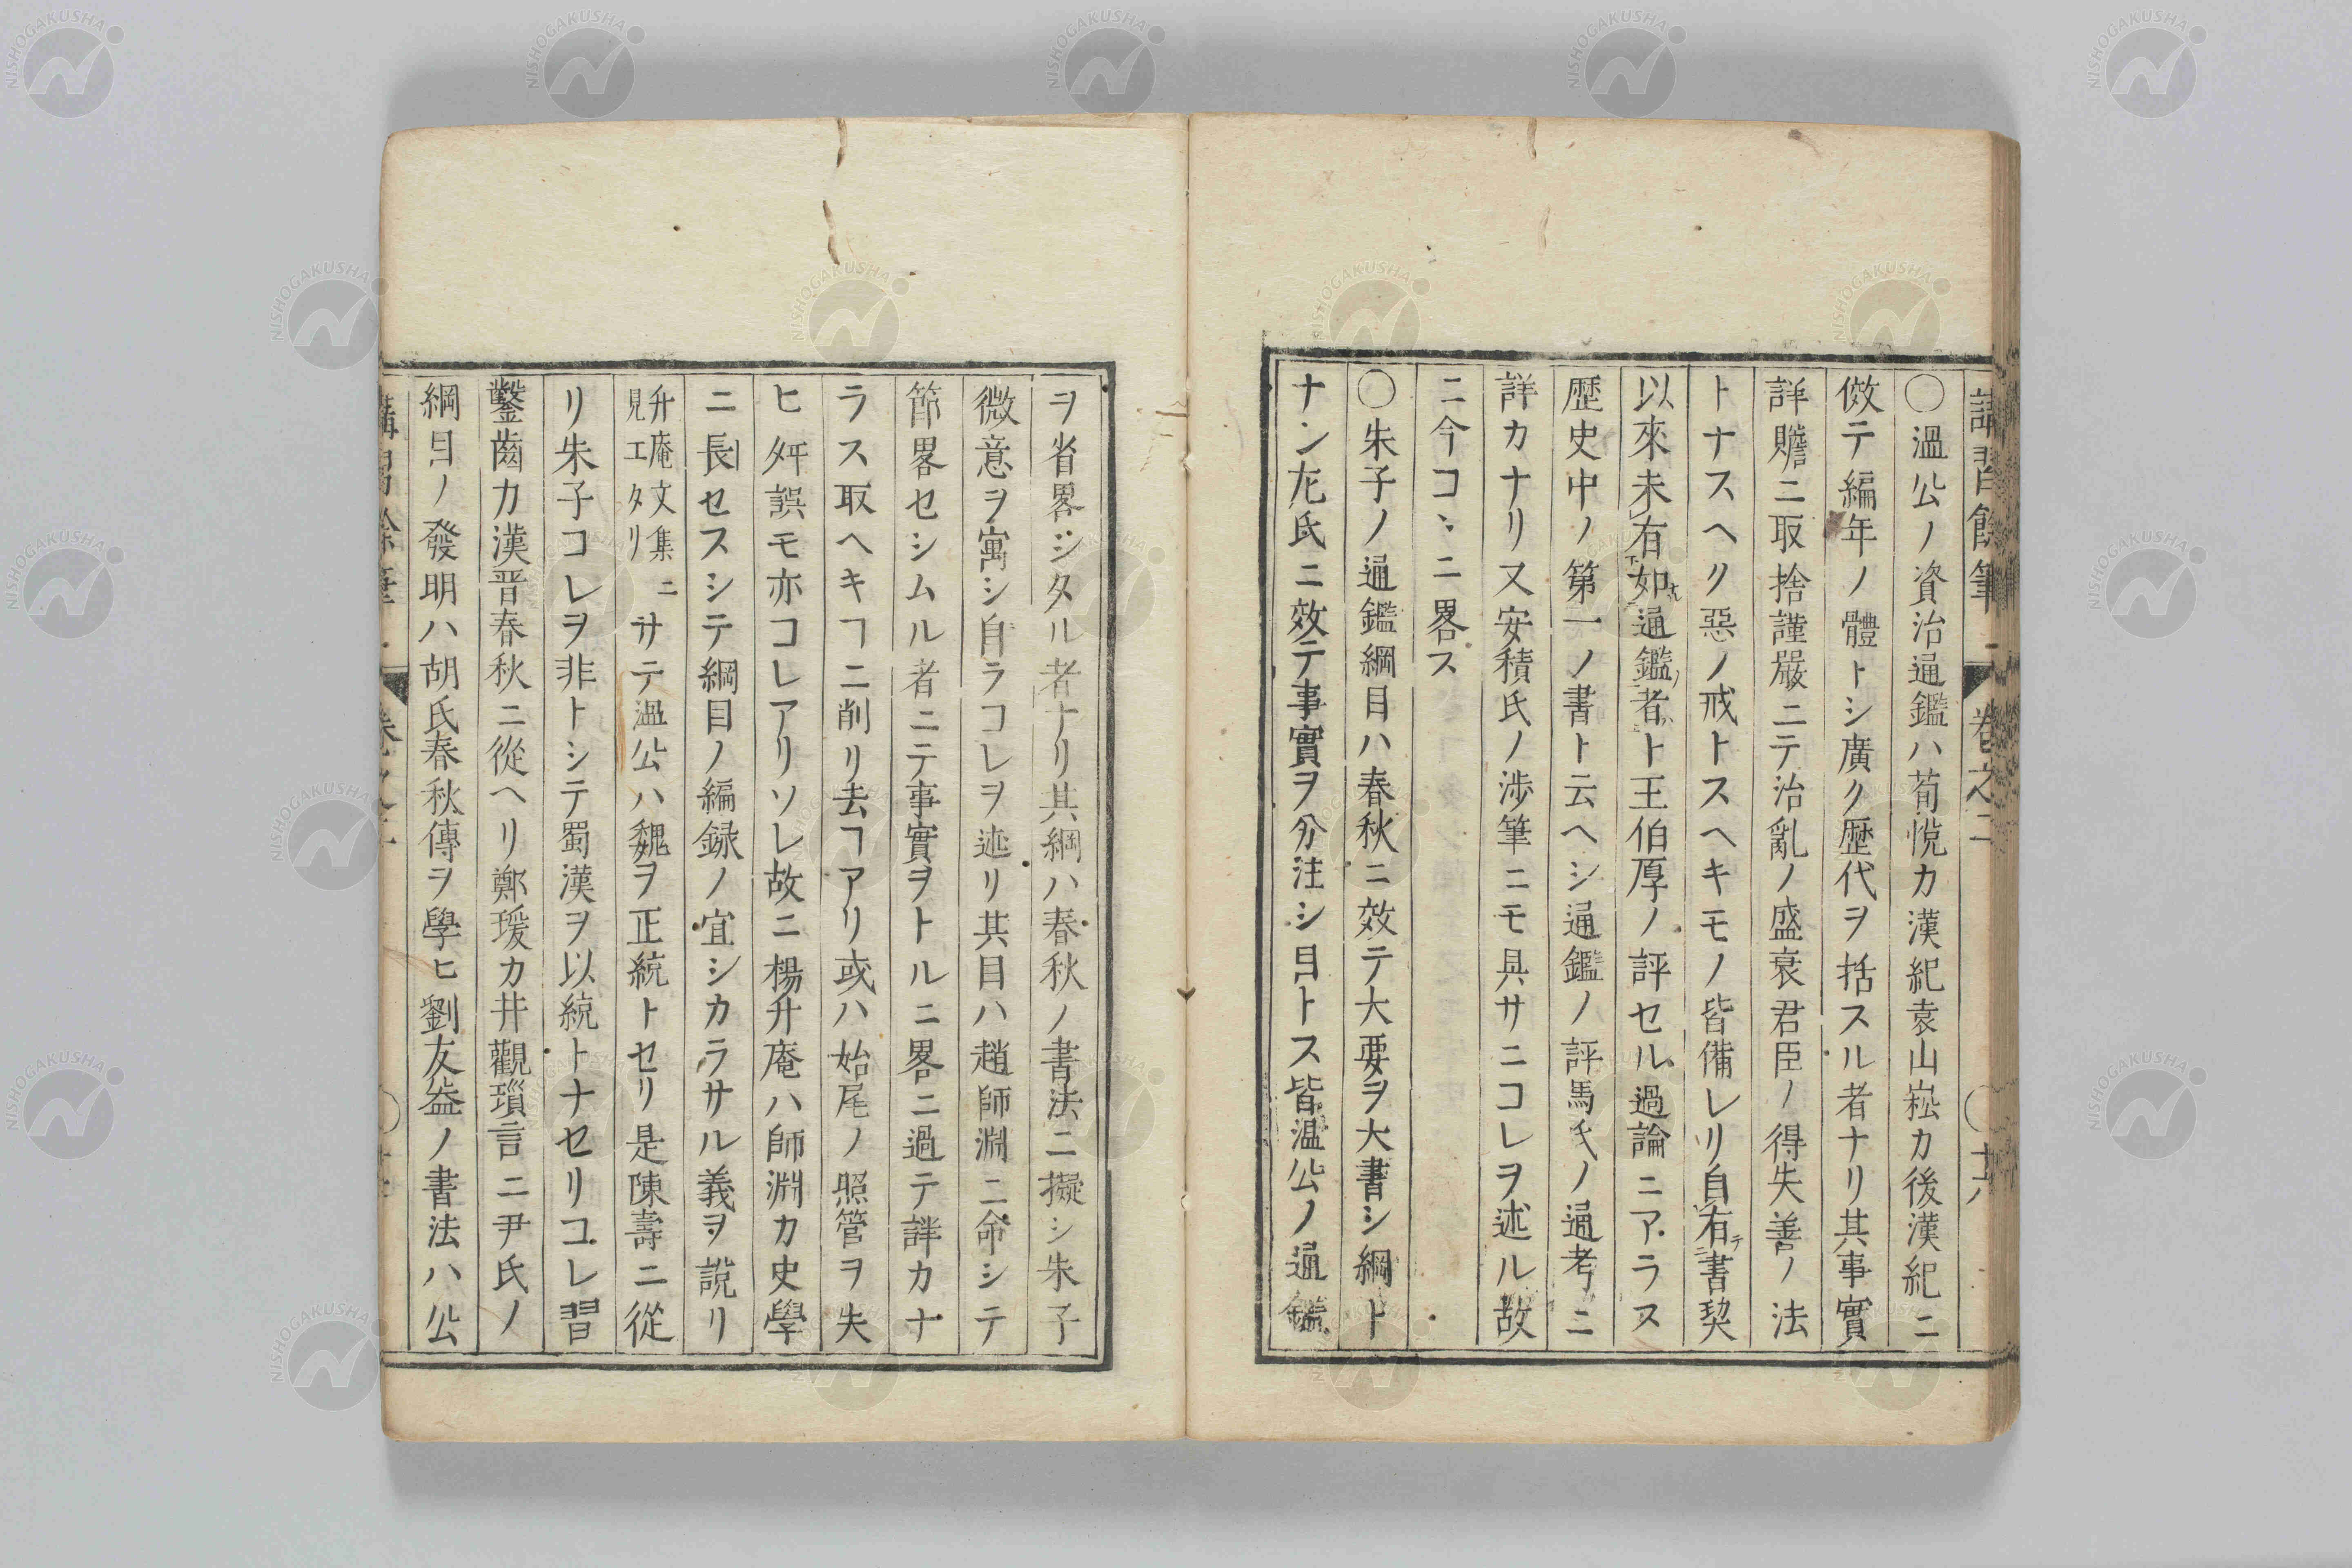 講習餘筆 卷之二 〇十八
〇溫公ノ資治通鑑ハ荀悅カ漢紀袁山崧カ後漢紀ニ
倣テ編年ノ體トシ廣ク歷代ヲ括スル者ナリ其事實
詳贍ニ取捨謹嚴ニテ治亂ノ盛衰君臣ノ得失善ノ法
トナスヘク惡ノ戒トスヘキモノ皆備レリ自有書契
以來未有如通鑑者ト王伯厚ノ評セル過論ニアラス
歷史中ノ第一ノ書ト云ヘシ通鑑ノ評馬氏ノ通考ニ
詳カナリ又安積氏ノ渉筆ニモ具サニコレヲ述ル故
ニ今コヽニ畧ス
〇朱子ノ通鑑綱目ハ春秋ニ效テ大要ヲ大書シ綱ト
ナシ左氏ニ效テ事實ヲ分注シ目トス皆溫公ノ通鑑
ヲ省畧シタル者ナリ其綱ハ春秋ノ書法ニ擬シ朱子
微意ヲ寓シ自ラコレヲ述リ其目ハ趙師淵ニ命シテ
節畧セシムル者ニテ事實ヲトルニ畧ニ過テ詳カナ
ラス取ヘキヿニ削リ去ヿアリ或ハ始尾ノ照管ヲ失
ヒ舛誤モ亦コレアリソレ故ニ楊升庵ハ師淵カ史學
ニ長セスシテ綱目ノ編録ノ宜シカラサル義ヲ說リ
升庵文集ニ見エタリ サテ溫公ハ魏ヲ正統トセリ是陳壽ニ從
リ朱子コレヲ非トシテ蜀漢ヲ以統トナセリコレ習
鑿齒カ漢晋春秋ニ從ヘリ鄭瑗カ井觀瑣言ニ尹氏ノ
綱目ノ發明ハ胡氏春秋傳ヲ學ヒ劉友益ノ書法ハ公